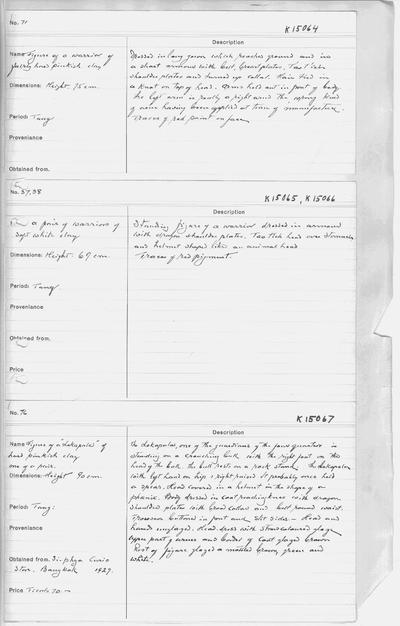 No. 71
K15064
Description
Name Figure of a warrior of
fairly hard pinkish clay
Dimensions: Height 75 cm.
Period: Tang
Provenience
Obtained from.
Dressed in long gown which reaches ground and in
a short armour with belt, breastplates, Tao Tieh
shoulder plates and turned up collar. Hair tied in
a knot on top of head. Arms held out in front of body.
The left arm is really a right arm, the wrong kind
of arm having been applied at time of manufacture.
Traces of red paint on face.
No. 37,38
K15065, K15066
Description
a pair of warriors of
soft white clay
Dimensions: Height: 69 cm.
Period: Tang
Provenience
Obtained from.
Price
Standing figure of a warrior dressed in armour
with dragon shoulder plates. Tao Tieh head over stomach
and helmet shaped like an animal head
Traces of red pigment
No. 76
K15067
Description
Name Figure of a "Lokapala" of
hard pinkish clay
one of a pair.
Dimensions: Height 90 cm.
Period: Tang:
Provenience
Obtained from. Si-phya Curio
Store. Bangkok 1927.
Price Ticals 70.-
The Lokapalas, one of the guardians of the four quarters is
standing on a crouching bull with the right foot on the
head of the bull. The bull rests on a rock stand. The Lokapala
with left hand on hip & right raised. It probably once held
a spear. Head covered in a helmet in the shape of a
phoenix. Body dressed in coat reaching knees with dragon
shoulder plates with broad collar and belt round waist.
Trousers buttoned in front and slit sides. - Head and
hands unglazed. Head dress with straw coloured glaze
upper part of arms and border of coat glazed brown
Rest of figure glazed a mottled brown, green and
white.